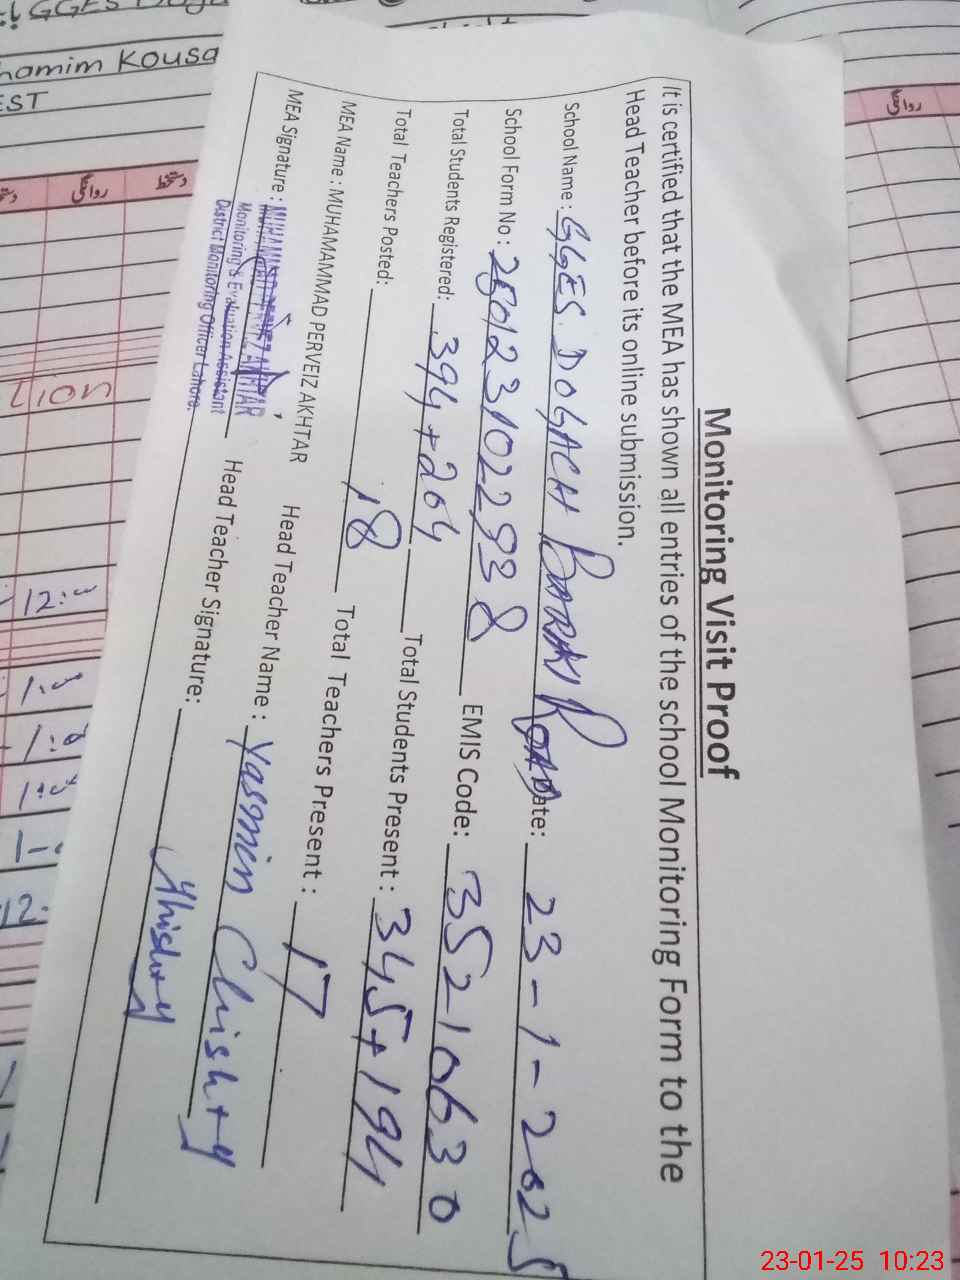 Monitoring Visit Proof
It is certified that the MEA has shown all entries of the school Monitoring Form to the
Head Teacher before its online submission.
School Name: GGES. DOGACH BARKI ROAD Date: 23-1-2025
School Form No: EMIS Code: 35210630
Total Students Registered: 394+204 Total Students Present: 345+194
Total Teachers Posted: 18 Total Teachers Present: 17
MEA Name: MUHAMAMMAD PERVEIZ AKHTAR Head Teacher Name: Yasmin Chishty
MEA Signature: MUHAMMAD PERVEZ AKHTAR Head Teacher Signature: Chishty
Monitoring & Evaluation Assistant
District Monitoring Officer Lahore.
GGES
hamim Kousa
EST
روانگی
دستخط
روانگی
tion
12:
23-01-25 10:23